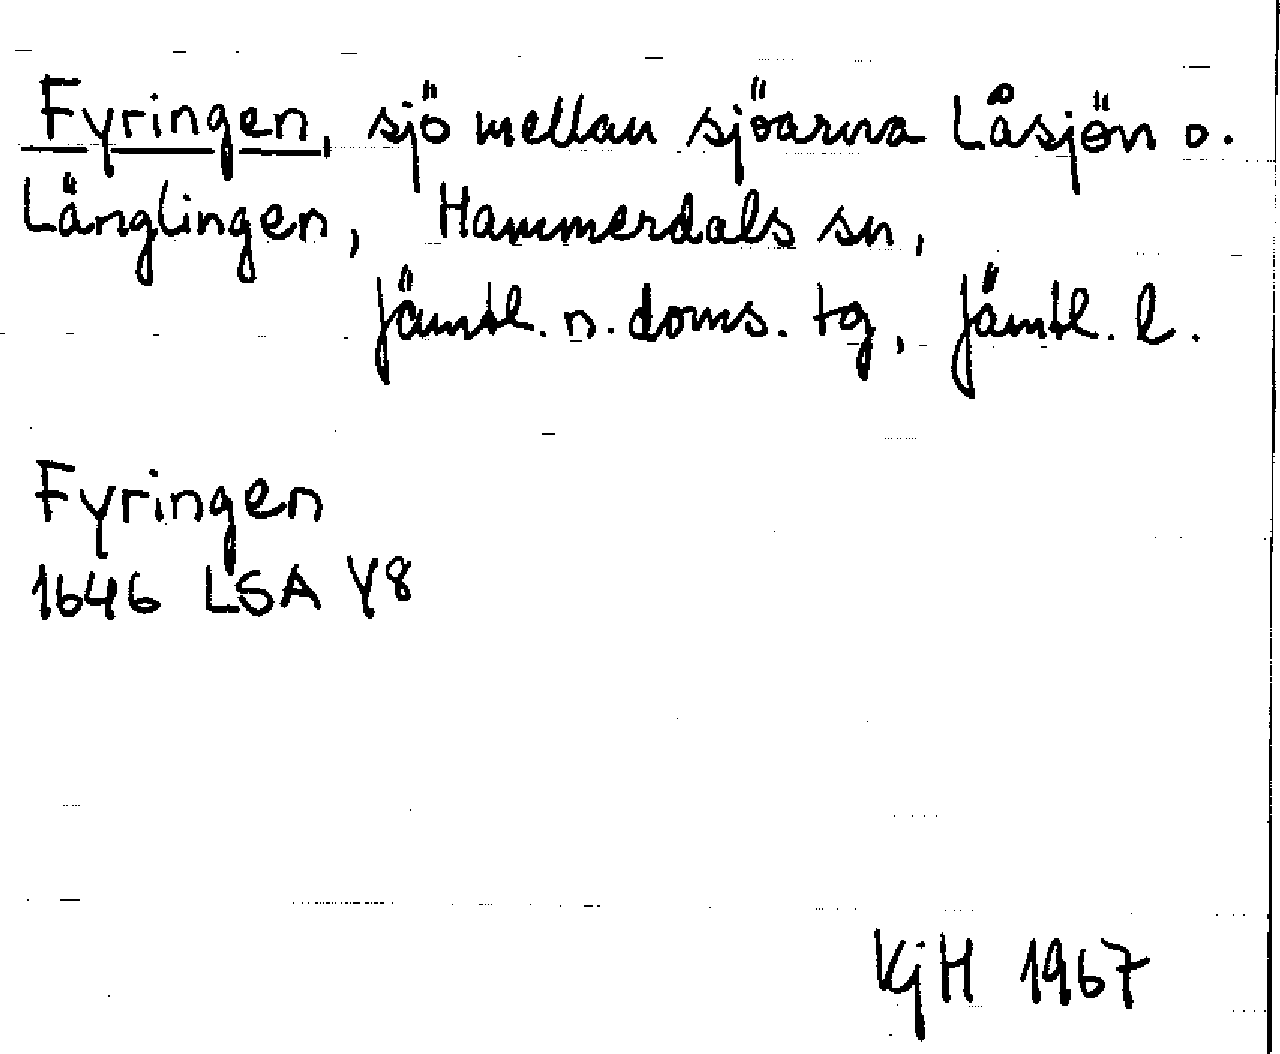 Fyringen, sjö mellan sjöarna Låsjön o.
Länglingen, Hammerdals sn,
Jämtl. n. doms. tg, Jämtl. l.
Fyringen
1646 LSA Y8
KjH 1967